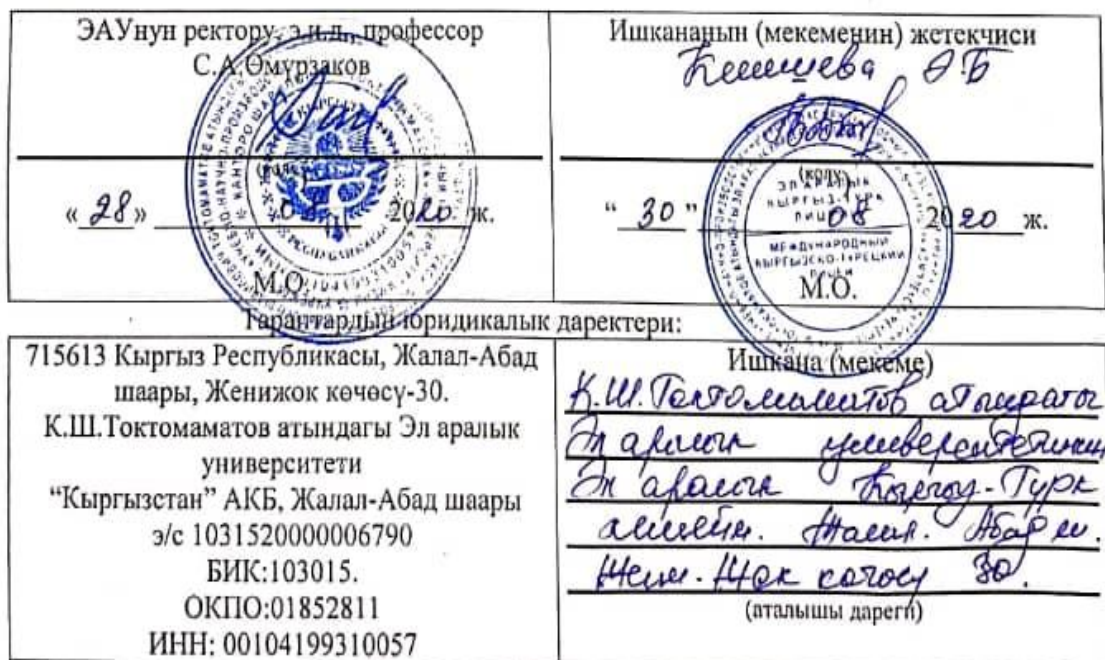 ЭАУнун ректору, э.и.д., профессор
С.А.Өмурзаков
(колу)
“ 28 » 08 2020 ж.
М.О.
Ишкананын (мекеменин) жетекчиси
(колу)
“ 30 ” 08 2020 ж.
М.О.
ЭЛ АРАЛЫК
КЫРГЫЗ-ТҮРК
ЛИЦЕЙ
МЕЖДУНАРОДНЫЙ
КЫРГЫЗСКО-ТУРЕЦКИЙ
ЛИЦЕЙ
Тараптардын юридикалык даректери:
715613 Кыргыз Республикасы, Жалал-Абад
шаары, Женижок көчөсү-30.
К.Ш.Токтомаматов атындагы Эл аралык
университети
“Кыргызстан” АКБ, Жалал-Абад шаары
э/с 1031520000006790
БИК:103015.
ОКПО:01852811
ИНН: 00104199310057
Ишкана (мекеме)
К.Ш.Токтомаматов атындагы
Эл аралык университетинин
Эл аралык Кыргыз-Турк
лицейи. Жалал-Абад ш.
Жени-Жок көчөсү 30.
(аталышы дареги)